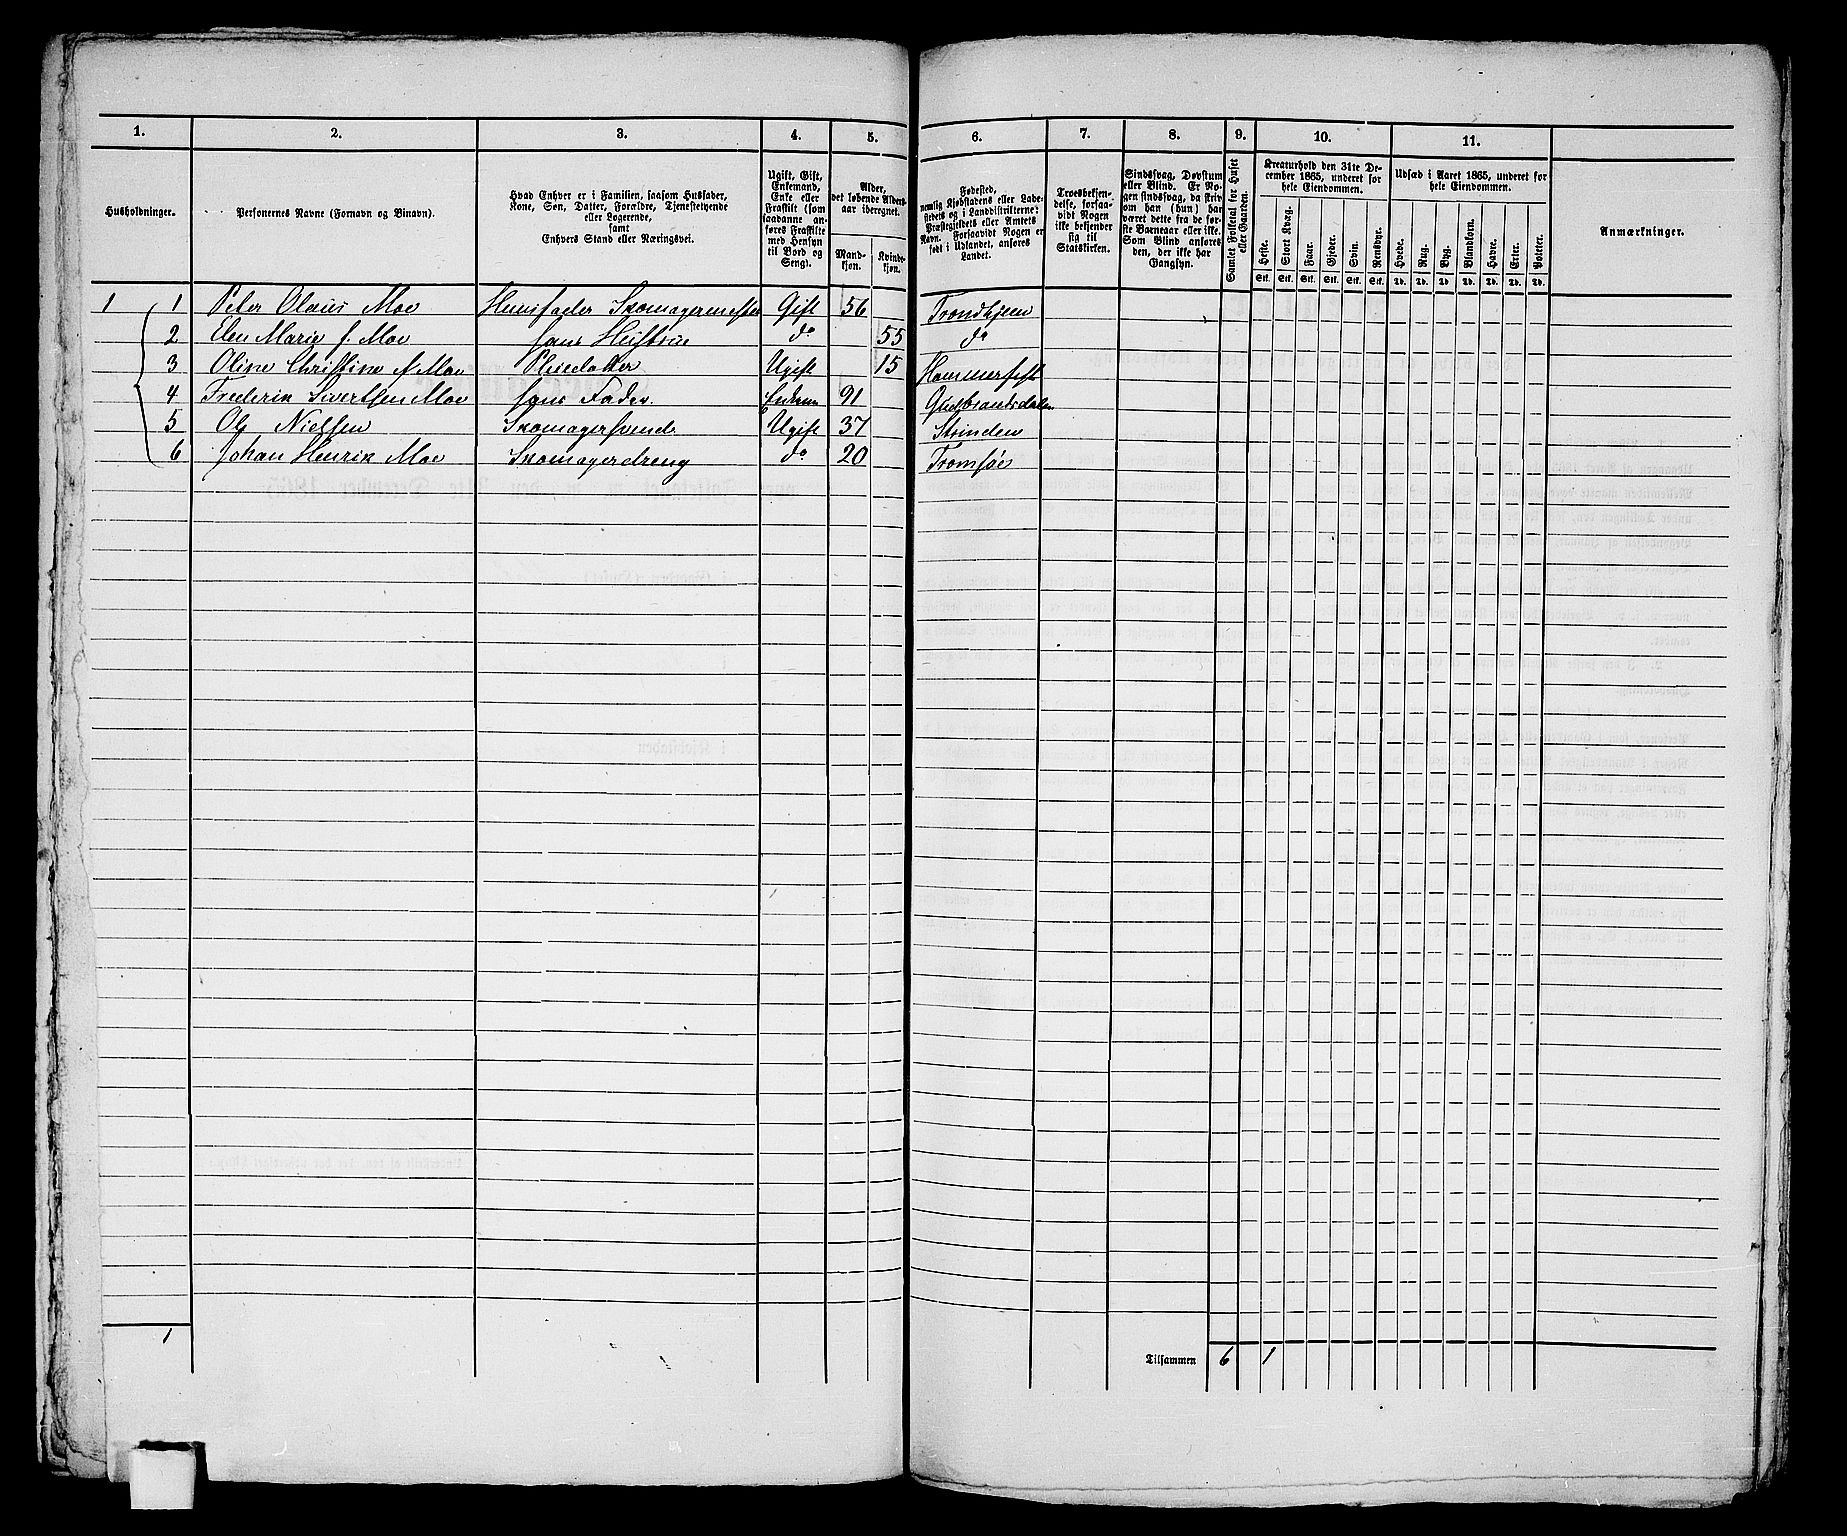 1. 2. 3. 4. 5. 6. 7. 8. 9. 10. 11.
Husholdninger.
Personernes Navne (Fornavn og Binavn).
Hvad Enhver er i Familien, saasom Husfader,
Kone, Søn, Datter, Forældre, Tjenestetyende
eller Logerende,
samt
Enhvers Stand eller Næringsvei.
Ugift, Gift,
Enkemand,
Enke eller
Fraskilt (som
saadanne an-
føres Fraskilte
med Hensyn
til Bord og
Seng).
Alder,
det løbende Alders-
aar iberegnet.
Mand-
kjøn.
Kvinde-
kjøn.
Fødested,
nemlig Kjøbstadens eller Lade-
stedets og i Landdistrikterne:
Præstegjeldets eller Amtets
Navn. Forsaavidt Nogen er
født i Udlandet, anføres
Landet.
Troesbekjen-
delse, forsaa-
vidt Nogen
ikke bekjender
sig til
Statskirken.
Sindssvag, Døvstum
eller Blind. Er No-
gen sindssvag, da skriv
om han (hun) har
været dette fra de før-
ste Barneaar eller ikke.
Som Blind anføres
den, der ikke har
Gangsyn.
Samlet Folketal for Huset
eller Gaarden.
Kreaturhold den 31te De-
cember 1865, underet for
hele Eiendommen.
Heste. Stort Kvæg. Faar. Gjeder. Svin. Rensdyr.
Stk. Stk. Stk. Stk. Stk. Stk.
Udsæd i Aaret 1865, underet for
hele Eiendommen.
Hvede. Rug. Byg. Blandkorn. Havre. Erter. Poteter.
Td. Td. Td. Td. Td. Td. Td.
Anmærkninger.
1 1 Peter Olaus Moe Huusfader Skomagermester Gift 56 Trondhjem
2 Elen Marie f. Moe hans Hustrue do 55 do
3 Oline Christine f Moe Pleiedatter Ugift 15 Hammerfest
4 Frederik Sivertsen Moe hans Fader Enkem 91 Gudbrandsdalen
5 Ole Nielsen Skomagersvend Ugift 37 Strinden
6 Johan Henrik Moe Skomagerdreng do 20 Tromsøe
1
Tilsammen 6 1